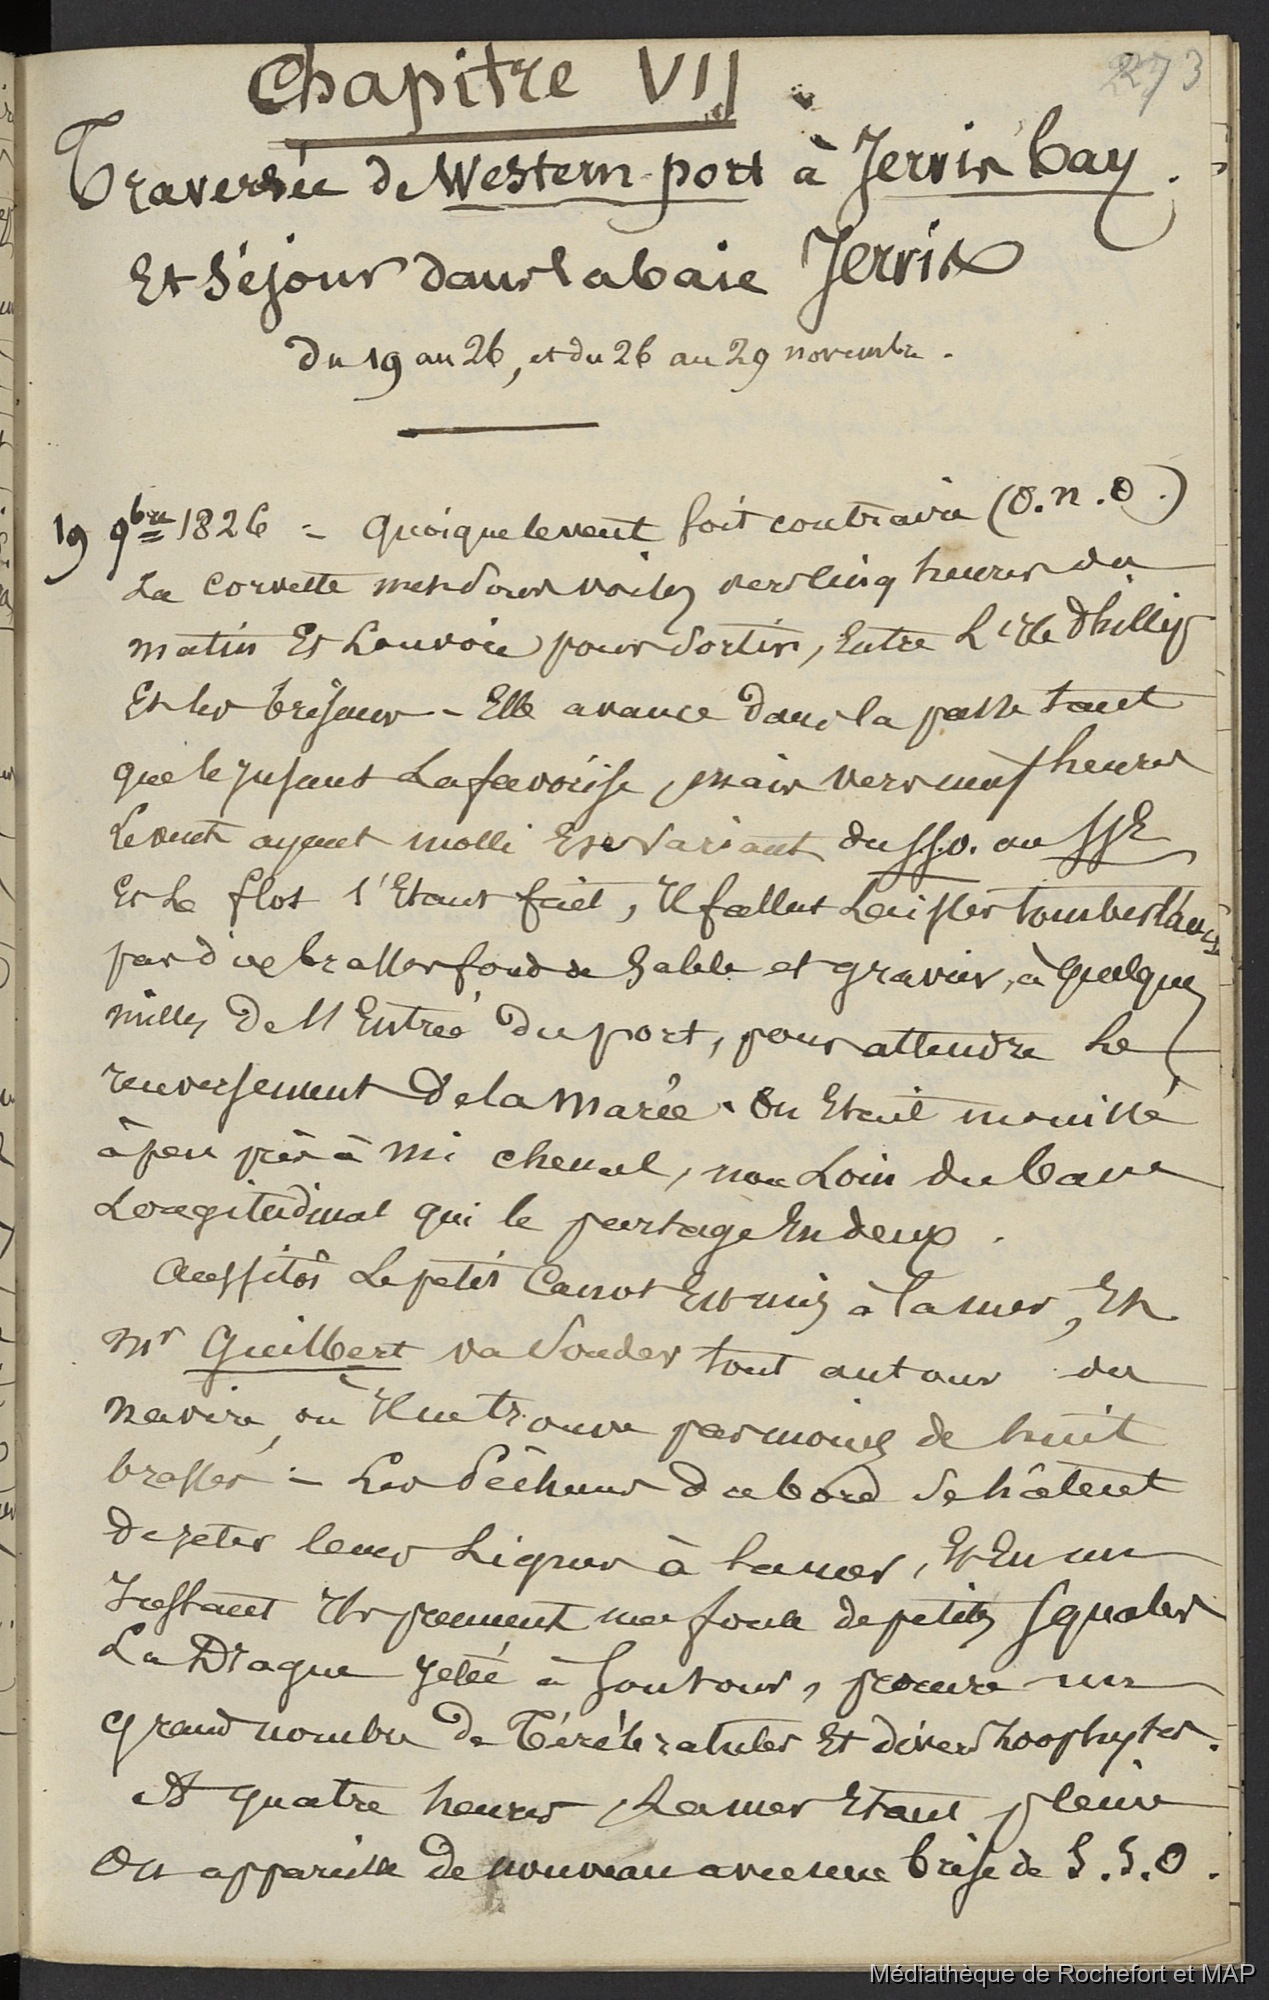 273
Chapitre VII
Traversée de Western port à Jervis bay.
Et Séjour dans la baie Jervis
du 19 au 26, et du 26 au 29 novembre.
19 9bre 1826 = quoique le vent soit contraire (O.n.O.)
La corvette met sous voiles vers cinq heures du
matin Et Louvoie pour sortir, Entre L'ile Phillip
Et les brisans - Elle avance dans la passe tant
que le jusant La favorise, mais vers neuf heures
Le vent ayant molli Et variant du SSO. au SSE
Et Le flot s'Etant fait, Il fallut Laisser tomber l'ancre
par dix brasses fond de Sable et gravier, à quelques
milles De l'Entrée Du port, pour attendre Le
renversement De la Marée. On Etait mouillé
à peu près à Mi chenal, non Loin du banc
Longitudinal qui le partage En deux.
Aussitôt Le petit Canot Est mis à la mer, Et
Mr Guilbert va Sonder tout autour du
Navire, où Il ne trouve pas moins de huit
brasses - Les Pêcheurs du bord Se hâtent
De jeter leurs Lignes à La mer, Et En un
Instant Ils prennent une foule de petits Squales
La Drague jetée à Son tour, procure un
grand nombre De Térébratules Et divers Zoophytes.
A quatre heures, La mer Etant pleine
On appareille De nouveau avec une brise de S.S.O.
Médiathèque de Rochefort et MAP